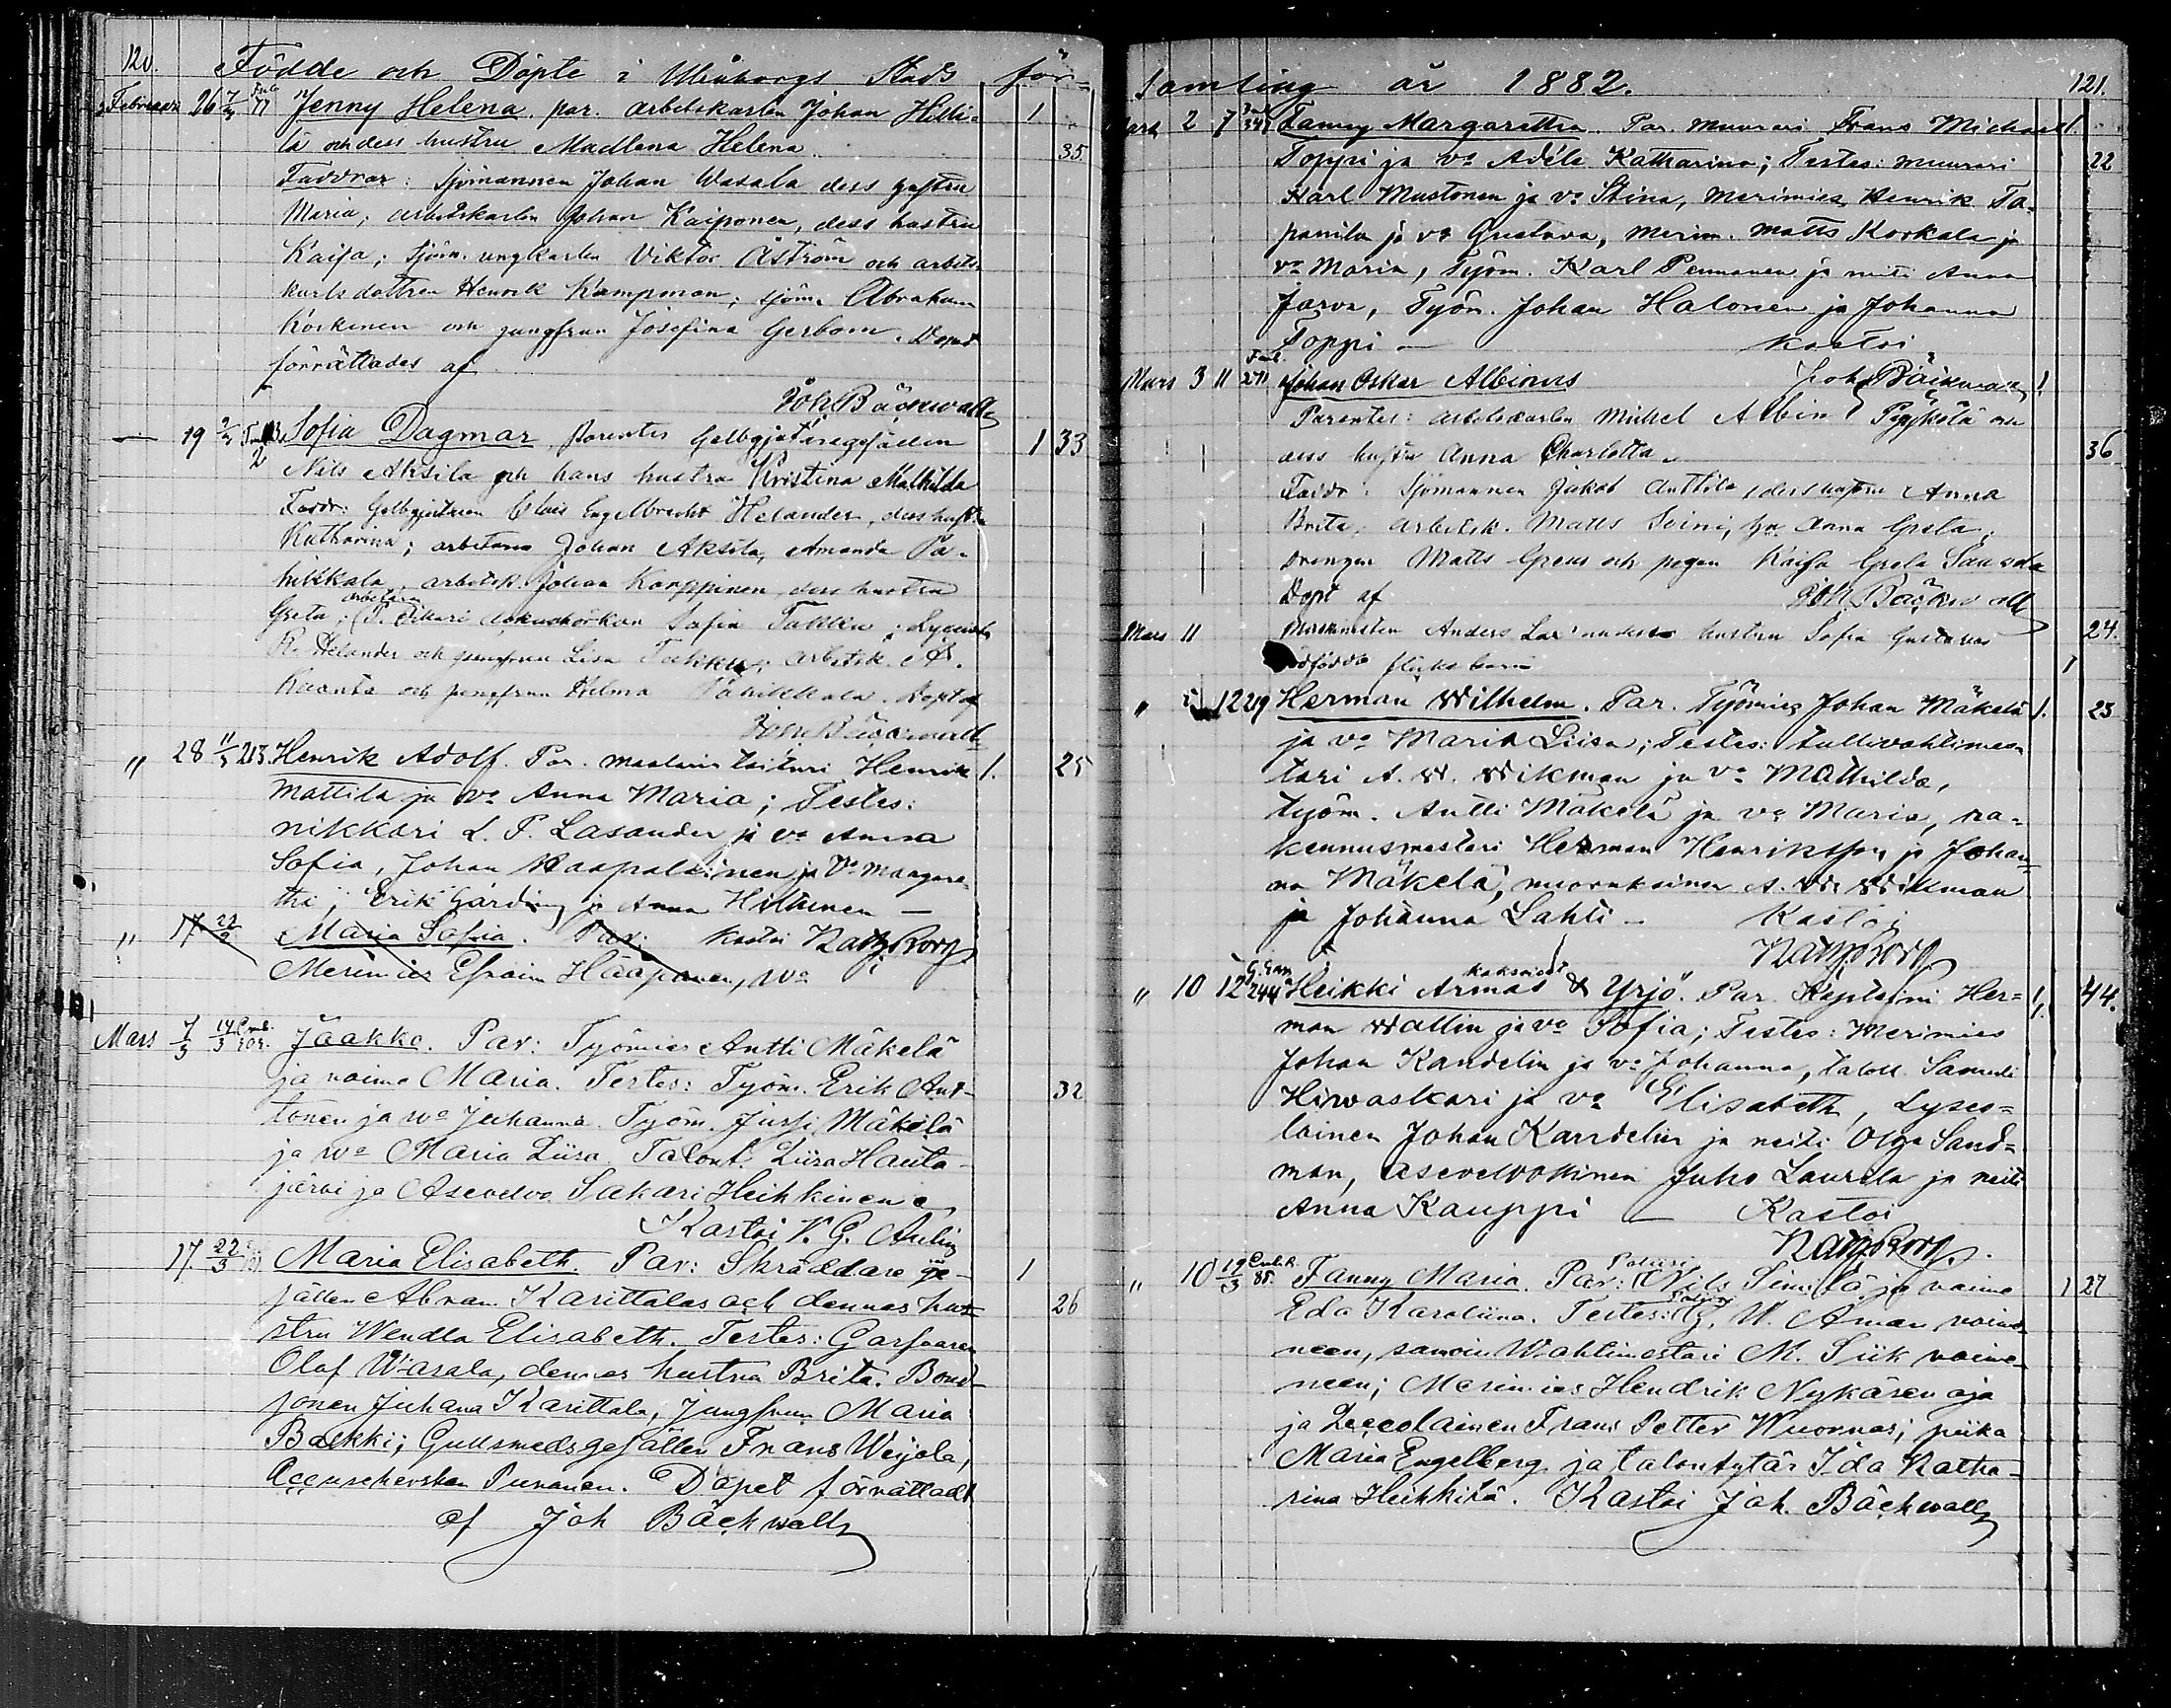 120.
Födde och Döpte i Uleåborgs Stads för-
Februari 26 7/3 77 Jenny Helena, par. arbetskarlen Johan Hilli- 1
lä och dess hustru Madlena Helena. 35
Faddrar: Sjömannen Johan Wasala dess hustru
Maria; arbetskarlen Johan Kaiponen, dess hustru
Kaisa; sjöm. ungkarlen Viktor Åström och arbets
karlsdottren Henrik Kampman; sjöm. Abraham
Koskinen och jungfrun Josefina Gerbom. Dopet
förrättades af
Joh. Bäckwall
— 19 Sofia Dagmar, Parentes Gelbgjutaregesällen 1 33
Nils Aksila och hans hustru Kristina Mathilda
Faddr: Gelbgjutaren Engelbrecht Helander, dess hustru
Katharina; Johan Aksila, Amanda Pä-
hikkala, arbetsk. Johan Karppinen dess hustru
Greta; arbetaren Sofia
R. Helander och jungfrun Lisa Takku; arbetsk. A.
och jungfrun Hilma Pähikkala. Döpt af
Joh. Bäckwall
" 28 11/3 213. Henrik Adolf. Par. maalarin taituri Henrik 1. 25
Mattila ja vo Anna Maria; Testes:
nikkari L. P. Lasander ja vo Anna
Sofia, Johan Haapalainen ja vo Margare-
tha; Erik Gårding ja Anna Hiltunen —
" 17 22/2 Maria Sofia. Par: Kastoi
Merimies Efraim Haapanen, wo
Mars 7/3 14/3 Jaakko. Par: Työmies Antti Mäkelä
ja vaimo Maria. Testes: Työm. Erik Ant- 32
tonen ja wo Juhanna. Työm. Jussi Mäkelä
ja wo Maria Liisa. Talont. Liisa Hauta-
järvi ja Asevelvo. Sakari Heikkinen
Kastoi K. G.
17. 22/3 Maria Elisabeth. Par: Skräddare ge- 1
sällen Abram Karittalas och dennes hu- 26
stru Wendla Elisabeth. Testes: Garfvaren
Olaf Wasala, dennes hustru Brita. Bond-
sonen Juhana Karittala, jungfrun Maria
Backki; Gullsmedsgesällen Frans Weijola,
Accuscherskan Punanen. Dopet förrättadt
af Joh Bäckwall

samling år 1882. 121.
Mars 2 7 347 Fanny Margaretha. Par. muurari Frans Michael 1.
Toppi ja vo Adéle Katharina; Testes: muurari 22
Karl Mustonen ja vo Stina, Merimies Henrik Ta-
panila ja vo Gustava, Merim. Matts Korkala ja
vo Maria, Työm. Karl Pennanen ja neiti Anna
Jarva, Työm. Johan Halonen ja Johanna
Toppi — Kastoi
Mars 3 11 271 Johan Oskar Albinus Joh Bäckwall 1
Parentes: arbetskarlen Mickel Albin Pyykölä och
dess hustru Anna Charlotta. 36
Faddr: Sjömannen Jakob Anttila, dess hustru Anna
Brita; arbetsk. Matts Soini, hu. Anna Greta;
drengen Matts Grens och pigan Kaisa Greta
Döpt af Joh. Bäckwall
Mars 11 Anders hustru Sofia Gustavas 24.
dödfödda flickebarn 1
" 12 219 Herman Wilhelm. Par. Työmies Johan Mäkelä 1. 23
ja vo Maria Liisa; Testes: tullivahtimes-
tari A. W. Wikman ja vo Mathilda,
työm. Antti Mäkelä ja vo Maria, ra-
kennusmestari Herman Henriksson ja Johan-
na Mäkelä, nuorukainen A. W. Wikman
ja Johanna Lahti — Kastoi
" 10 12 244 Heikki Armas & Yrjö. kaksoiset Par. Kapteini Her- 1. 44.
man Wallin ja vo Sofia; Testes: Merimies 1.
Johan Kandelin ja vo Johanna, taloll. Samuli
Hirvaskari ja vo Elisabeth, Lyseo-
lainen Johan Kandelin ja neiti Olga Sand-
man, asevelvollinen Juho Laurila ja neiti
Anna Kauppi — Kastoi
" 10 19/3 85. Fanny Maria. Par: Nils Simila ja vaimo 1 27
Eda Karoliina. Testes: G. W. Åman vaimo-
neen, samoin Wahtimestari M. Siik vaimo-
neen; Merimies Hendrik Nykänen
ja Lyceolainen Frans Petter Wuornos; piika
Maria Engelberg ja talontytär Ida Katha-
rina Heikkilä. Kastoi Joh. Bäckwall